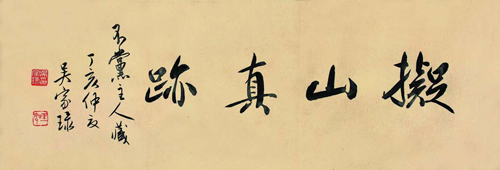 擬山真跡
不黨主人藏
丁亥仲夏
吴家琭